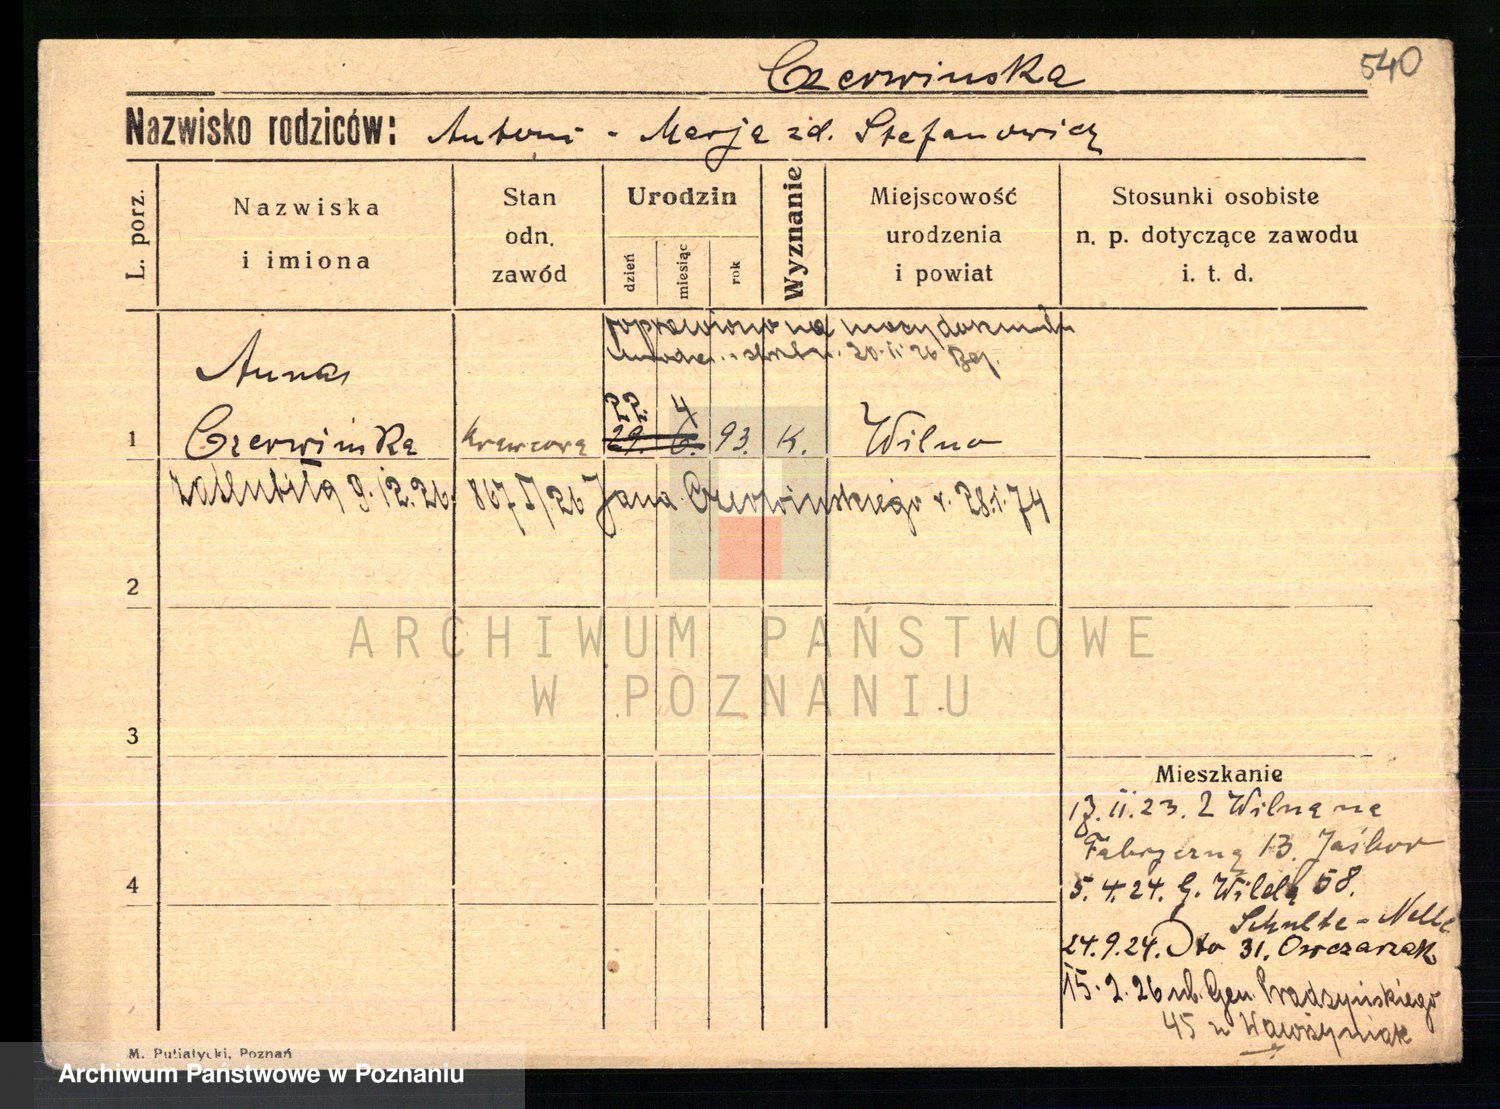 Czerwinska
540
Nazwisko rodziców: Antoni - Marja zd. Stefanowicz
L. porz.
Nazwiska
i imiona
Stan
odn.
zawód
Urodzin
dzień
miesiąc
rok
Wyznanie
Miejscowość
urodzenia
i powiat
Stosunki osobiste
n. p. dotyczące zawodu
i. t. d.
poprawiono na mocy
20.II.26
Anna
22. 4
1 Czerwinska krawcowa 29. 6. 93. K. Wilno
zaślubiła 9.12.26. 867/V/26 Jana Czerwinskiego r. 28.1.74
2
3
4
ARCHIWUM PAŃSTWOWE
W POZNANIU
Mieszkanie
13.II.23. Z Wilna na
Fabryczną 13. Jaśkow
5.4.24. G. Wilda 58.
Schulte - Nelle
24.9.24. Dto 31. Owczarzak
15.2.26 ul. Gen. Prądzyńskiego
45 u Wawrzyniak
M. Putiatycki, Poznań
Archiwum Państwowe w Poznaniu